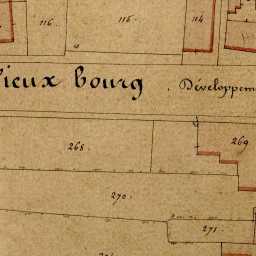 116
115
114
Vieux bourg
Développem
268
269
270
271